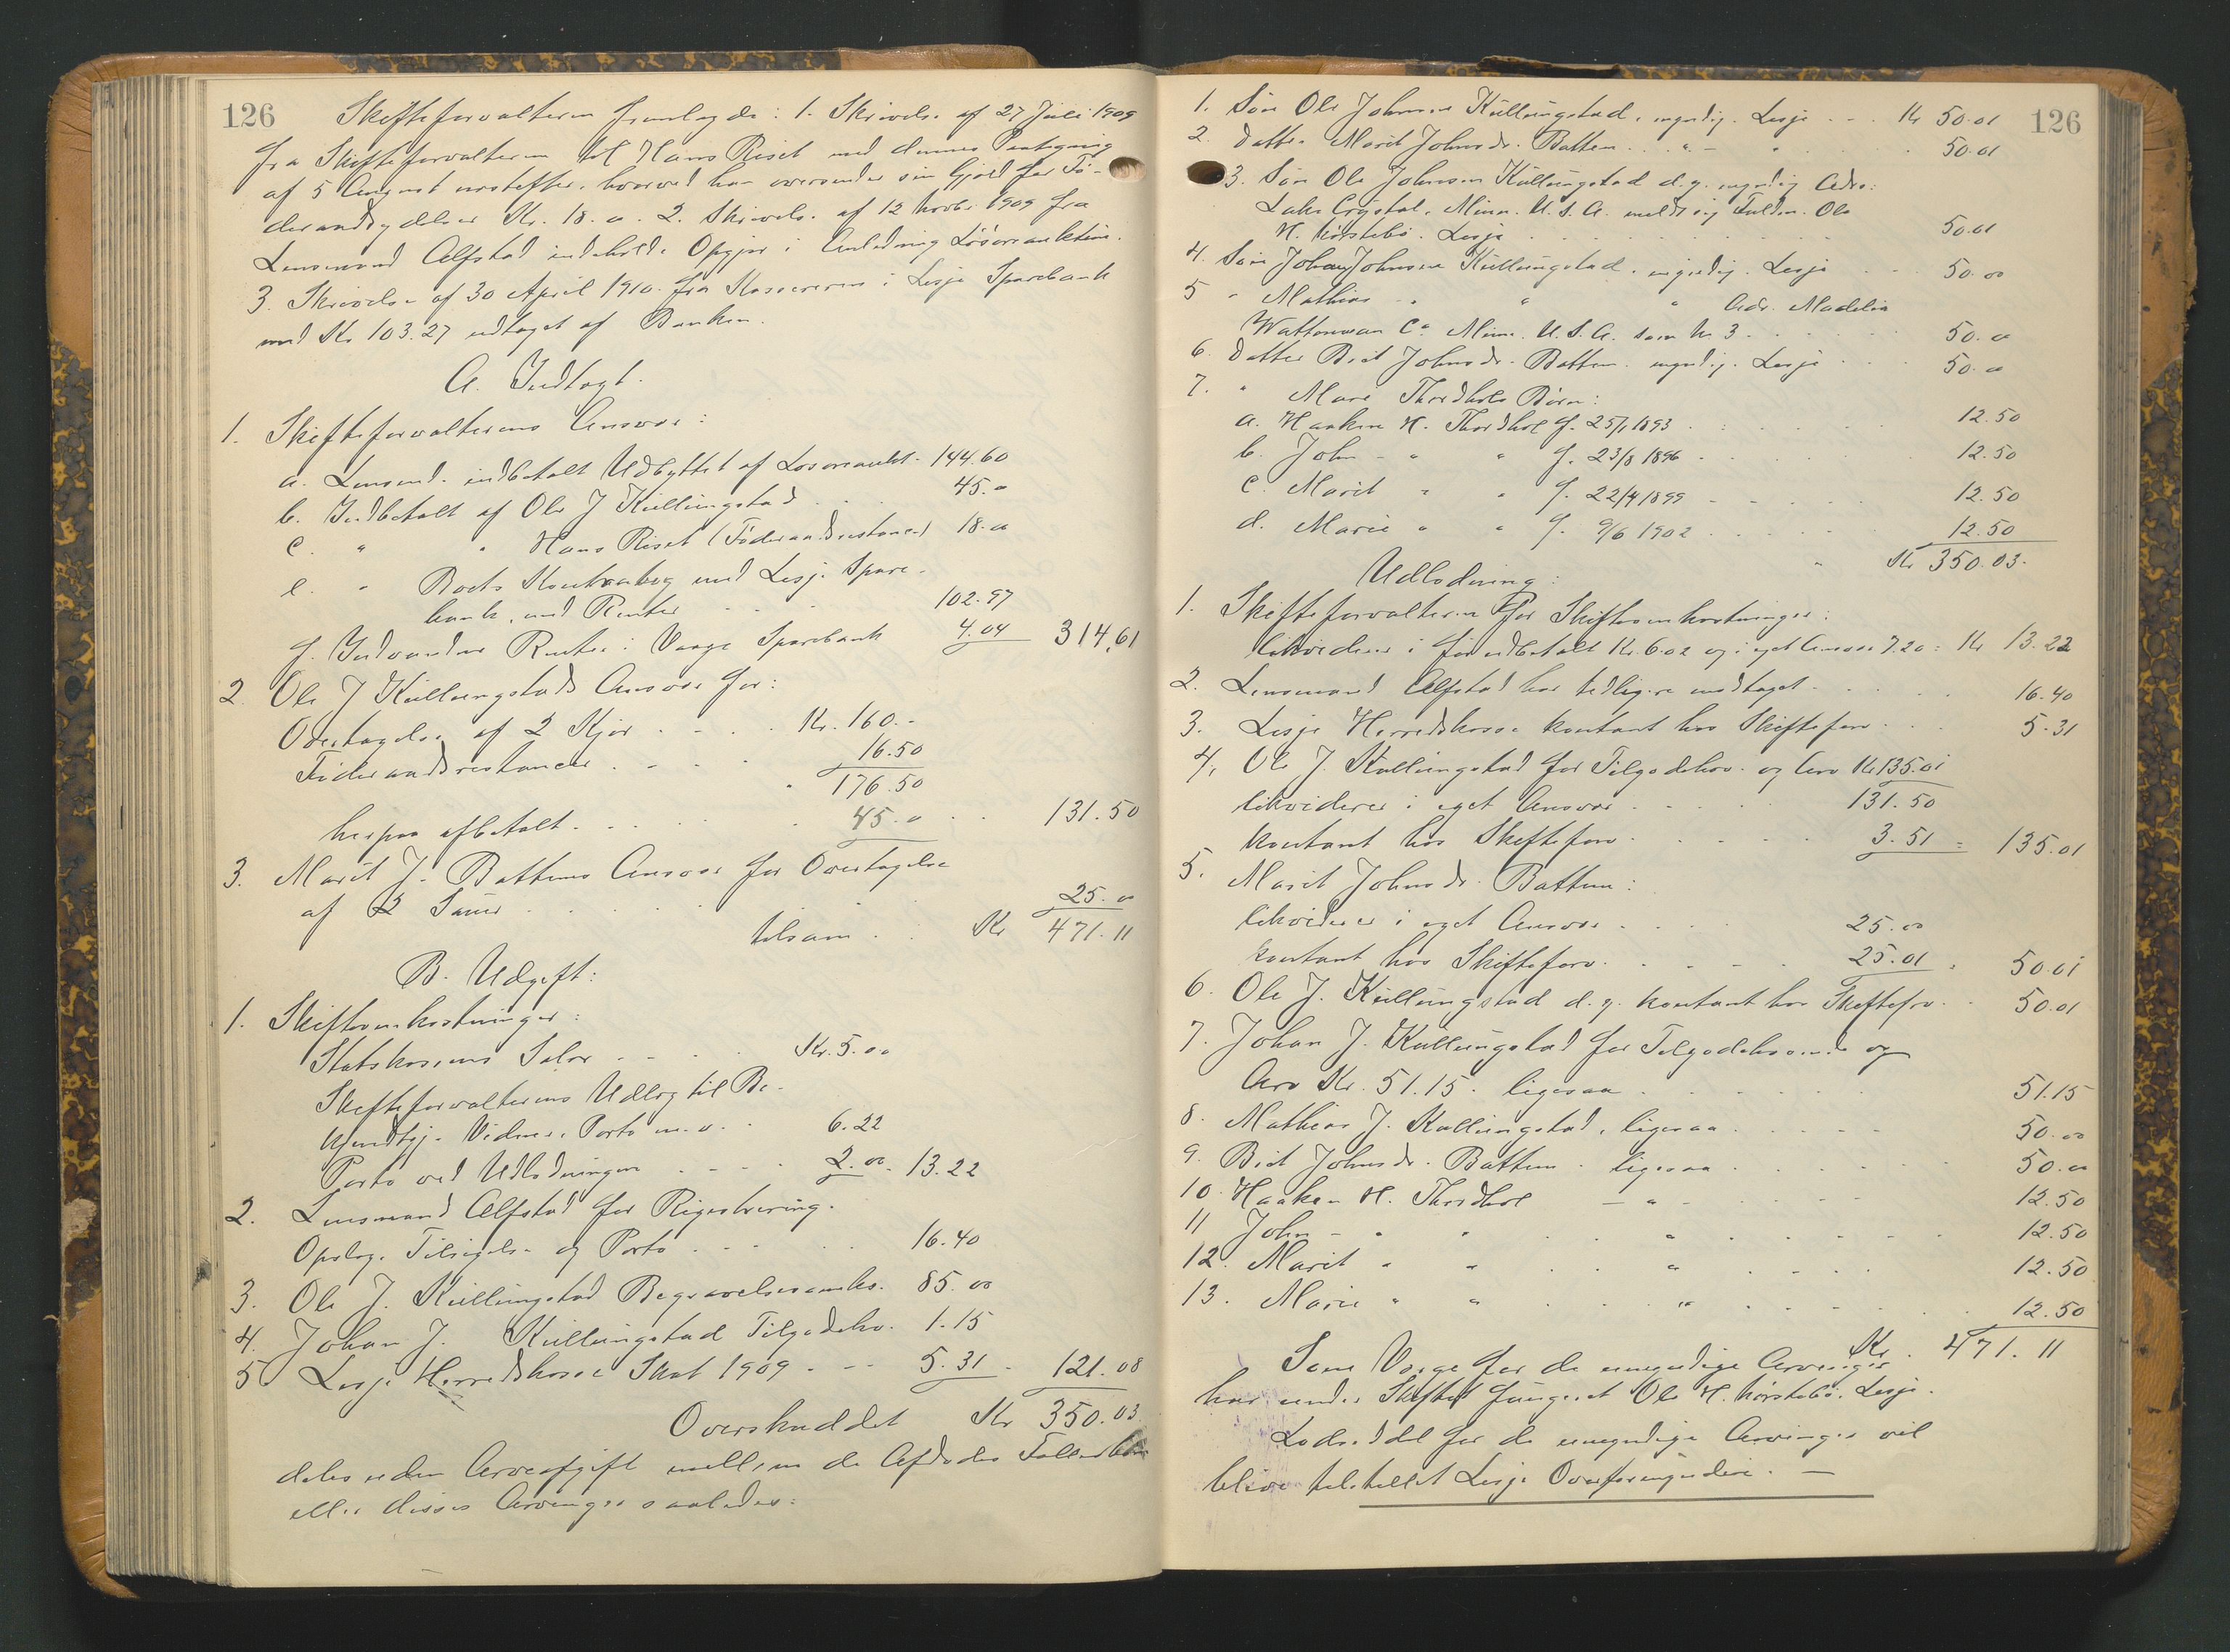 126
Skifteforvalteren fremlagde: 1. Skrivelse af 27 Juli 1909
fra Skifteforvalteren til Hans Riset med dennes Paategning
af 5 August næstefter, hvorved han oversender sin Gjæld for Fø-
deraadsydelser Kr. 18.00. 2. Skrivelse af 12 Novbr. 1909 fra
Lensmand Alfstad indehold. Opgjør i Anledning Løsøreauktion.
3. Skrivelse af 30 April 1910 fra Kassereren i Lesje Sparebank
med Kr 103.27 udtaget af Banken.
A. Indtægt.
1. Skifteforvalterens Ansvar:
a. Lensmd. indbetalt Udbyttet af Løsøreaukt. 144.60
b. Indbetalt af Ole J Kullungstad . . . 45.00
c. " " Hans Riset (Føderaadsrestance) 18.00
e. " Boets Kontrabog med Lesje Spare-
bank, med Renter . . . 102.97
f. Indvundne Renter i Vaage Sparebank 4.04 314,61
2. Ole J Kullungstads Ansvar for:
Overtagelse af 2 Kjør . . . . Kr. 160.-
Føderaadsrestancer . . . . 16.50
176.50
herpaa afbetalt . . . . . 45.00 . . 131.50
3. Marit J. Battens Ansvar for Overtagelse
af 2 Sauer . . . . . 25.00
tilsam. . . Kr 471.11
B. Udgift:
1. Skifteomkostninger:
Statskassens Salær . . . . Kr. 5.00
Skifteforvalterens Udlæg til Be-
kjendtgj. Vidner. Porto m.v. . 6.22
Porto ved Udlodningen . . . . 2.00. 13.22
2. Lensmand Alfstad for Registrering.
Opslag. Tilsigelse og Porto . . . . 16.40
3. Ole J. Kullungstad Begravelsesomks. 85.00
4. Johan J. Kullungstad Tilgodehv. 1.15
5. Lesje Herredskasse Skat 1909 . - - 5.31 . 121.08
Overskuddet Kr 350.03
deles uden Arveafgift mellem de Afdødes Fællesbørn
eller disses Arvinger saaledes:
126
1. Søn Ole Johnsen Kullungstad, myndig. Lesje . . . Kr 50.01
2. Datter Marit Johnsdr. Batten . . " - " . . . 50.01
3. Søn Ole Johnsen Kullungstad d.y. myndig Adr.:
Lake Crystal, Minn. U.S.A. meldt sig Fuldm. Ole
H. Kørstebø. Lesje . . . . . . . 50.01
4. Søn Johan Johnsen Kullungstad, myndig. Lesje . . . 50.00
5 " Mathias " " " Adr. Madelia
Wattonwan Co Minn. U.S.A. som No 3 . . . . . 50.00
6. Datter Brit Johnsdr. Batten. myndig. Lesje . . . 50.00
7. " Mari Thordhols Børn:
a. Haakon H. Thordhol f. 25/1 1893 . . . . . . 12.50
b. John " " f. 23/8 1896 . . . . . 12.50
c. Marit " " f. 22/4 1899 . . . . . 12.50
d. Marie " " f. 9/6 1902 . . . . . 12.50
" Kr 350.03.
Udlodning:
1. Skifteforvalteren for Skifteomkostninger:
likvideres i forudbetalt Kr. 6.02 og i eget Ansvar 7.20 = Kr 13.22
2. Lensmand Alfstad har tidligere modtaget . . . . 16.40
3. Lesje Herredskasse kontant hos Skifteforv. . . 5.31
4. Ole J. Kullungstad for Tilgodehav. og Arv Kr 135.01
likvideres i eget Ansvar . . . . 131.50
kontant hos Skifteforv. . . . . . 3.51 = 135.01
5. Marit Johnsdr. Batten:
likvideres i eget Ansvar . . . . 25.00
kontant hos Skifteforv. . . . . 25.01 . 50.01
6. Ole J. Kullungstad d.y. kontant hos Skifteforv. . . 50.01
7. Johan J. Kullungstad for Tilgodehavende og
Arv Kr. 51.15. ligesaa . . . . . . 51.15
8. Mathias J. Kullungstad, ligesaa . . . . . 50.00
9. Brit Johnsdr. Batten. ligesaa . . . . . . 50.00
10. Haakon H. Thordhol - " - . . . . . 12.50
11 John - " " . . " . . . . . 12.50
12. Marit " " . . " . . . . 12.50
13. Marie " " . . " . . . . . 12.50
Kr. 471.11
Som Værge for de umyndige Arvinger
har under Skiftet fungeret Ole H. Kørstebø. Lesje.
Lodseddel for de umyndige Arvinger vil
blive tilstillet Lesje Overformynderi. —